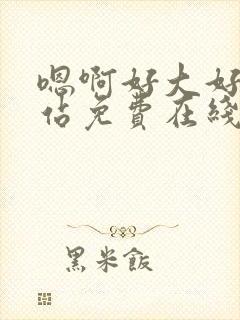 嗯啊好大好
佔免費在綫
黑米飯